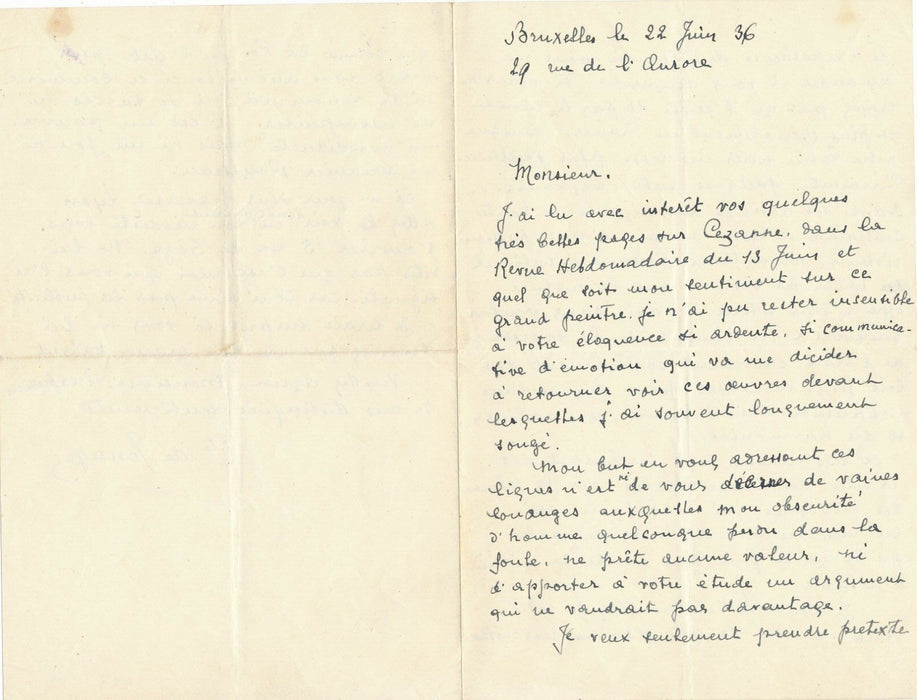 Bruxelles le 22 Juin 36
29 rue de l'Aurore
Monsieur.
J'ai lu avec interêt vos quelques
très belles pages sur Cezanne, dans la
Revue Hebdomadaire du 13 Juin et
quel que soit mon sentiment sur ce
grand peintre, je n'ai pu rester insensible
à votre éloquence si ardente, si communica-
tive d'émotion qui va me décider
à retourner voir ces œuvres devant
lesquelles j'ai souvent longuement
songé.
Mon but en vous adressant ces
lignes n'est ni de vous décerner de vaines
louanges auxquelles mon obscurité
d'homme quelconque perdu dans la
foule, ne prête aucune valeur, ni
d'apporter à votre étude un argument
qui ne vaudrait pas davantage.
Je veux seulement prendre pretexte